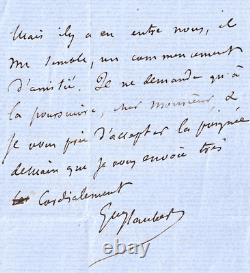 Mais il y a eu entre nous, il
me semble, un commencement
d'amitié. Je ne demande qu'à
la poursuivre, cher Monsieur, &
je vous prie d'accepter la poignée
de main que je vous envoie très
cordialement
Gve Flaubert